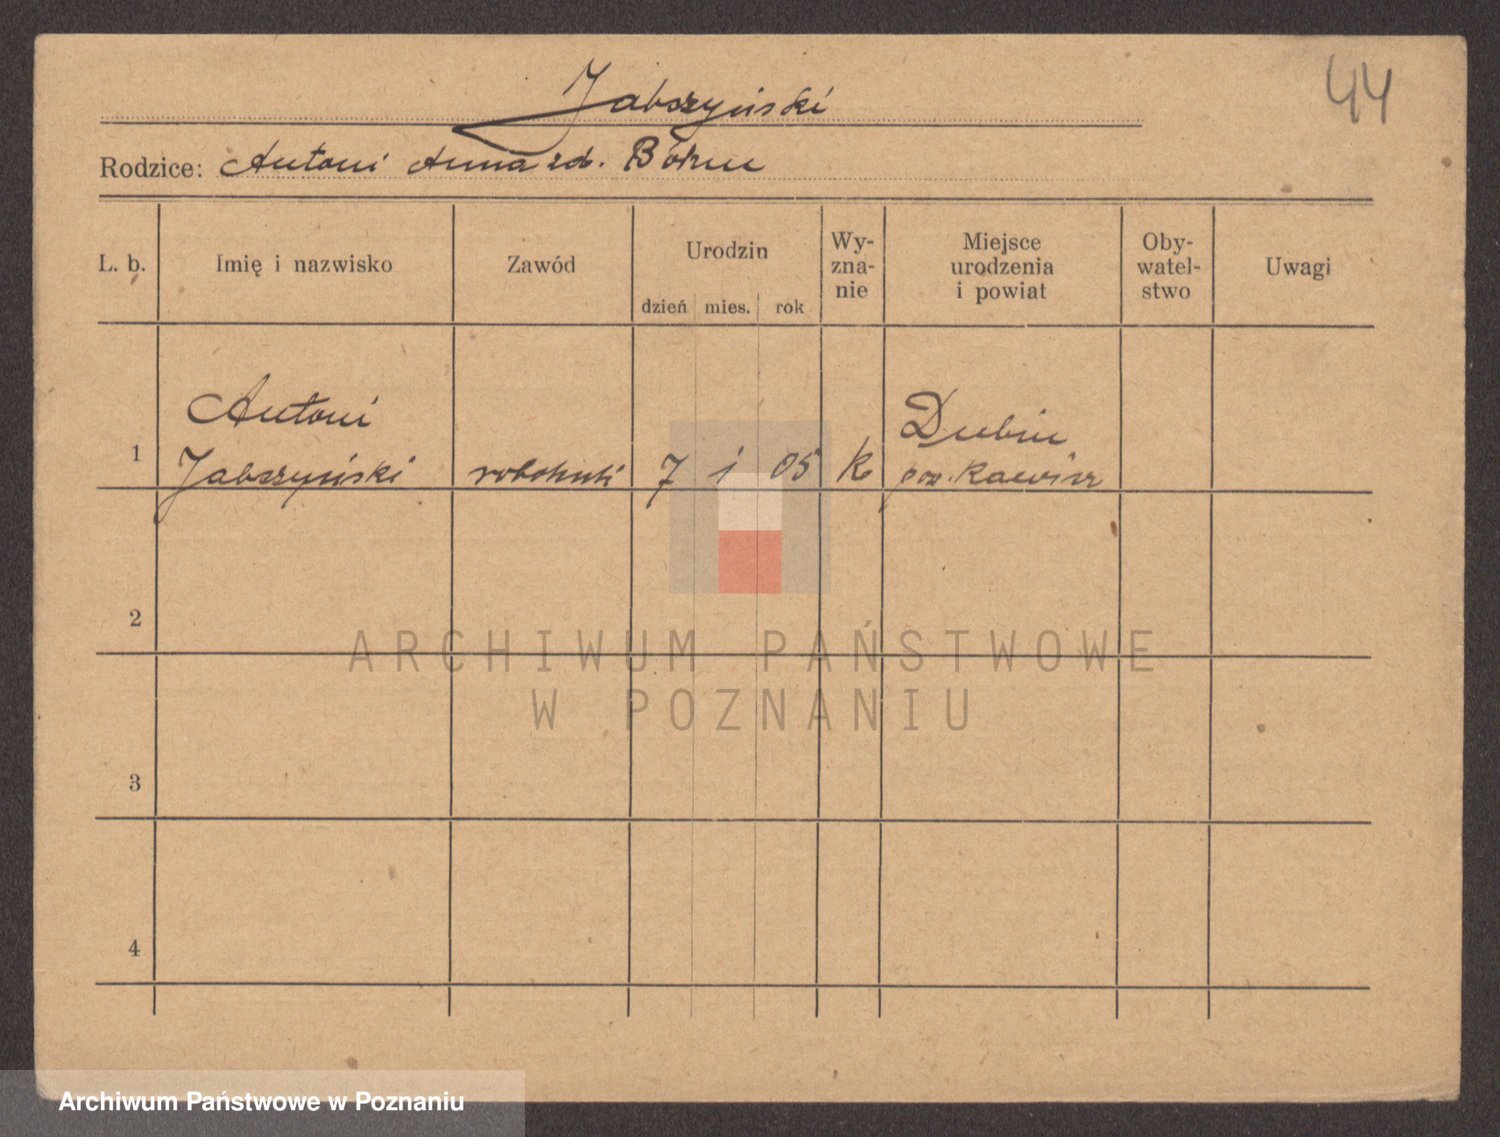 44
Jabczyński
Rodzice: Antoni Anna zd.
L. b.
Imię i nazwisko
Zawód
Urodzin
dzień mies. rok
Wy-
zna-
nie
Miejsce
urodzenia
i powiat
Oby-
watel-
stwo
Uwagi
1
Antoni
Jabczyński
robotnik
7 1 05
k
Dubin
pow. Rawicz
2
3
4
ARCHIWUM PAŃSTWOWE
W POZNANIU
Archiwum Państwowe w Poznaniu